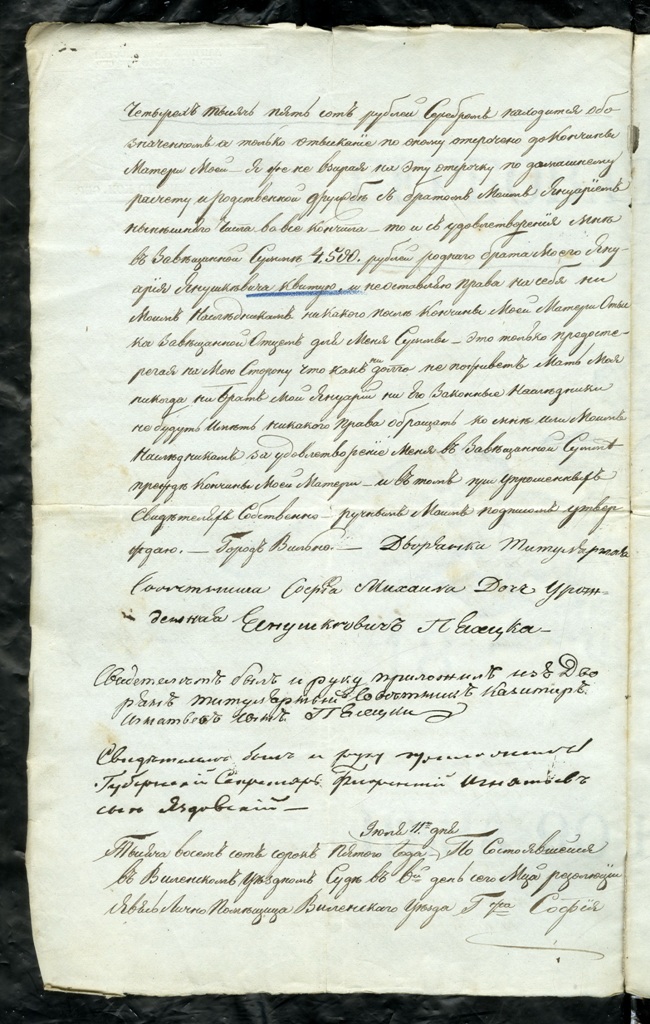 четырехъ тысячь пять сотъ рублей Серебромъ находится обо-
значенномъ а только отысканіе по оному отсрочено до Кончины
Матери Моей – Я же не взирая на эту отсрочку по домашнему
расчету и родственной дружбѣ съ братомъ Моимъ Януаріемъ
нынѣшняго Числа во все кончила – то и съ удовлетворенія мнѣ
въ Завѣщанной Суммѣ 4.500. рублей роднаго брата Моего Яну-
арія Янушкѣвича Квитую, и неоставляю права на себя ни
Моимъ Наслѣдникамъ никакого послѣ Кончины Моей Матери Отыс-
ка Завѣщанной Отцемъ для Меня Суммы – это только предосте-
регая на Мою Сторону что какъ ни долго не поживетъ Мать Моя
никогда ни братъ Мой Януарій ни Его Законные Наслѣдники
не будутъ Имѣть никакого Права обращать ко мнѣ или Моимъ
Наслѣдникамъ за удовлетвореніе Меня въ Завѣщанной Суммѣ
прежде Кончины Моей Матери – и въ томъ при упрошенныхъ
Свидѣтеляхъ Собственно-ручнымъ Моимъ подписомъ утвер-
ждаю. – Городъ Вильно. – Дворянка Титулярная
Совѣтница Софія Михаила Дочь Урож-
денная Енушкевичъ Пясецка –
Свидетелемъ былъ и руку приложилъ изъ Дво-
рянъ титулярный Совѣтникъ Казимиръ
Игнатьевъ сынъ Пясецки
Свидѣтелемъ былъ и руку приложилъ
Губернскій Секретарь Игнатьевъ
сынъ Яздовскій –
Іюля 11го дня
Тысяча восемь сотъ сорокъ Пятого Года – По Состоявшейся
въ Виленскомъ Уѣздномъ Судѣ въ 6й день сего Мца резолюціи
Явясь Лично Помѣщица Виленскаго Уѣзда Гжа Софія